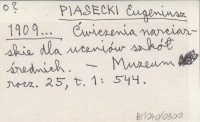 0? PIASECKI Eugeniusz
1909... Ćwiczenia narciar-
skie dla uczniów szkół
średnich. — Muzeum
rocz. 25, t. 1 : 544.